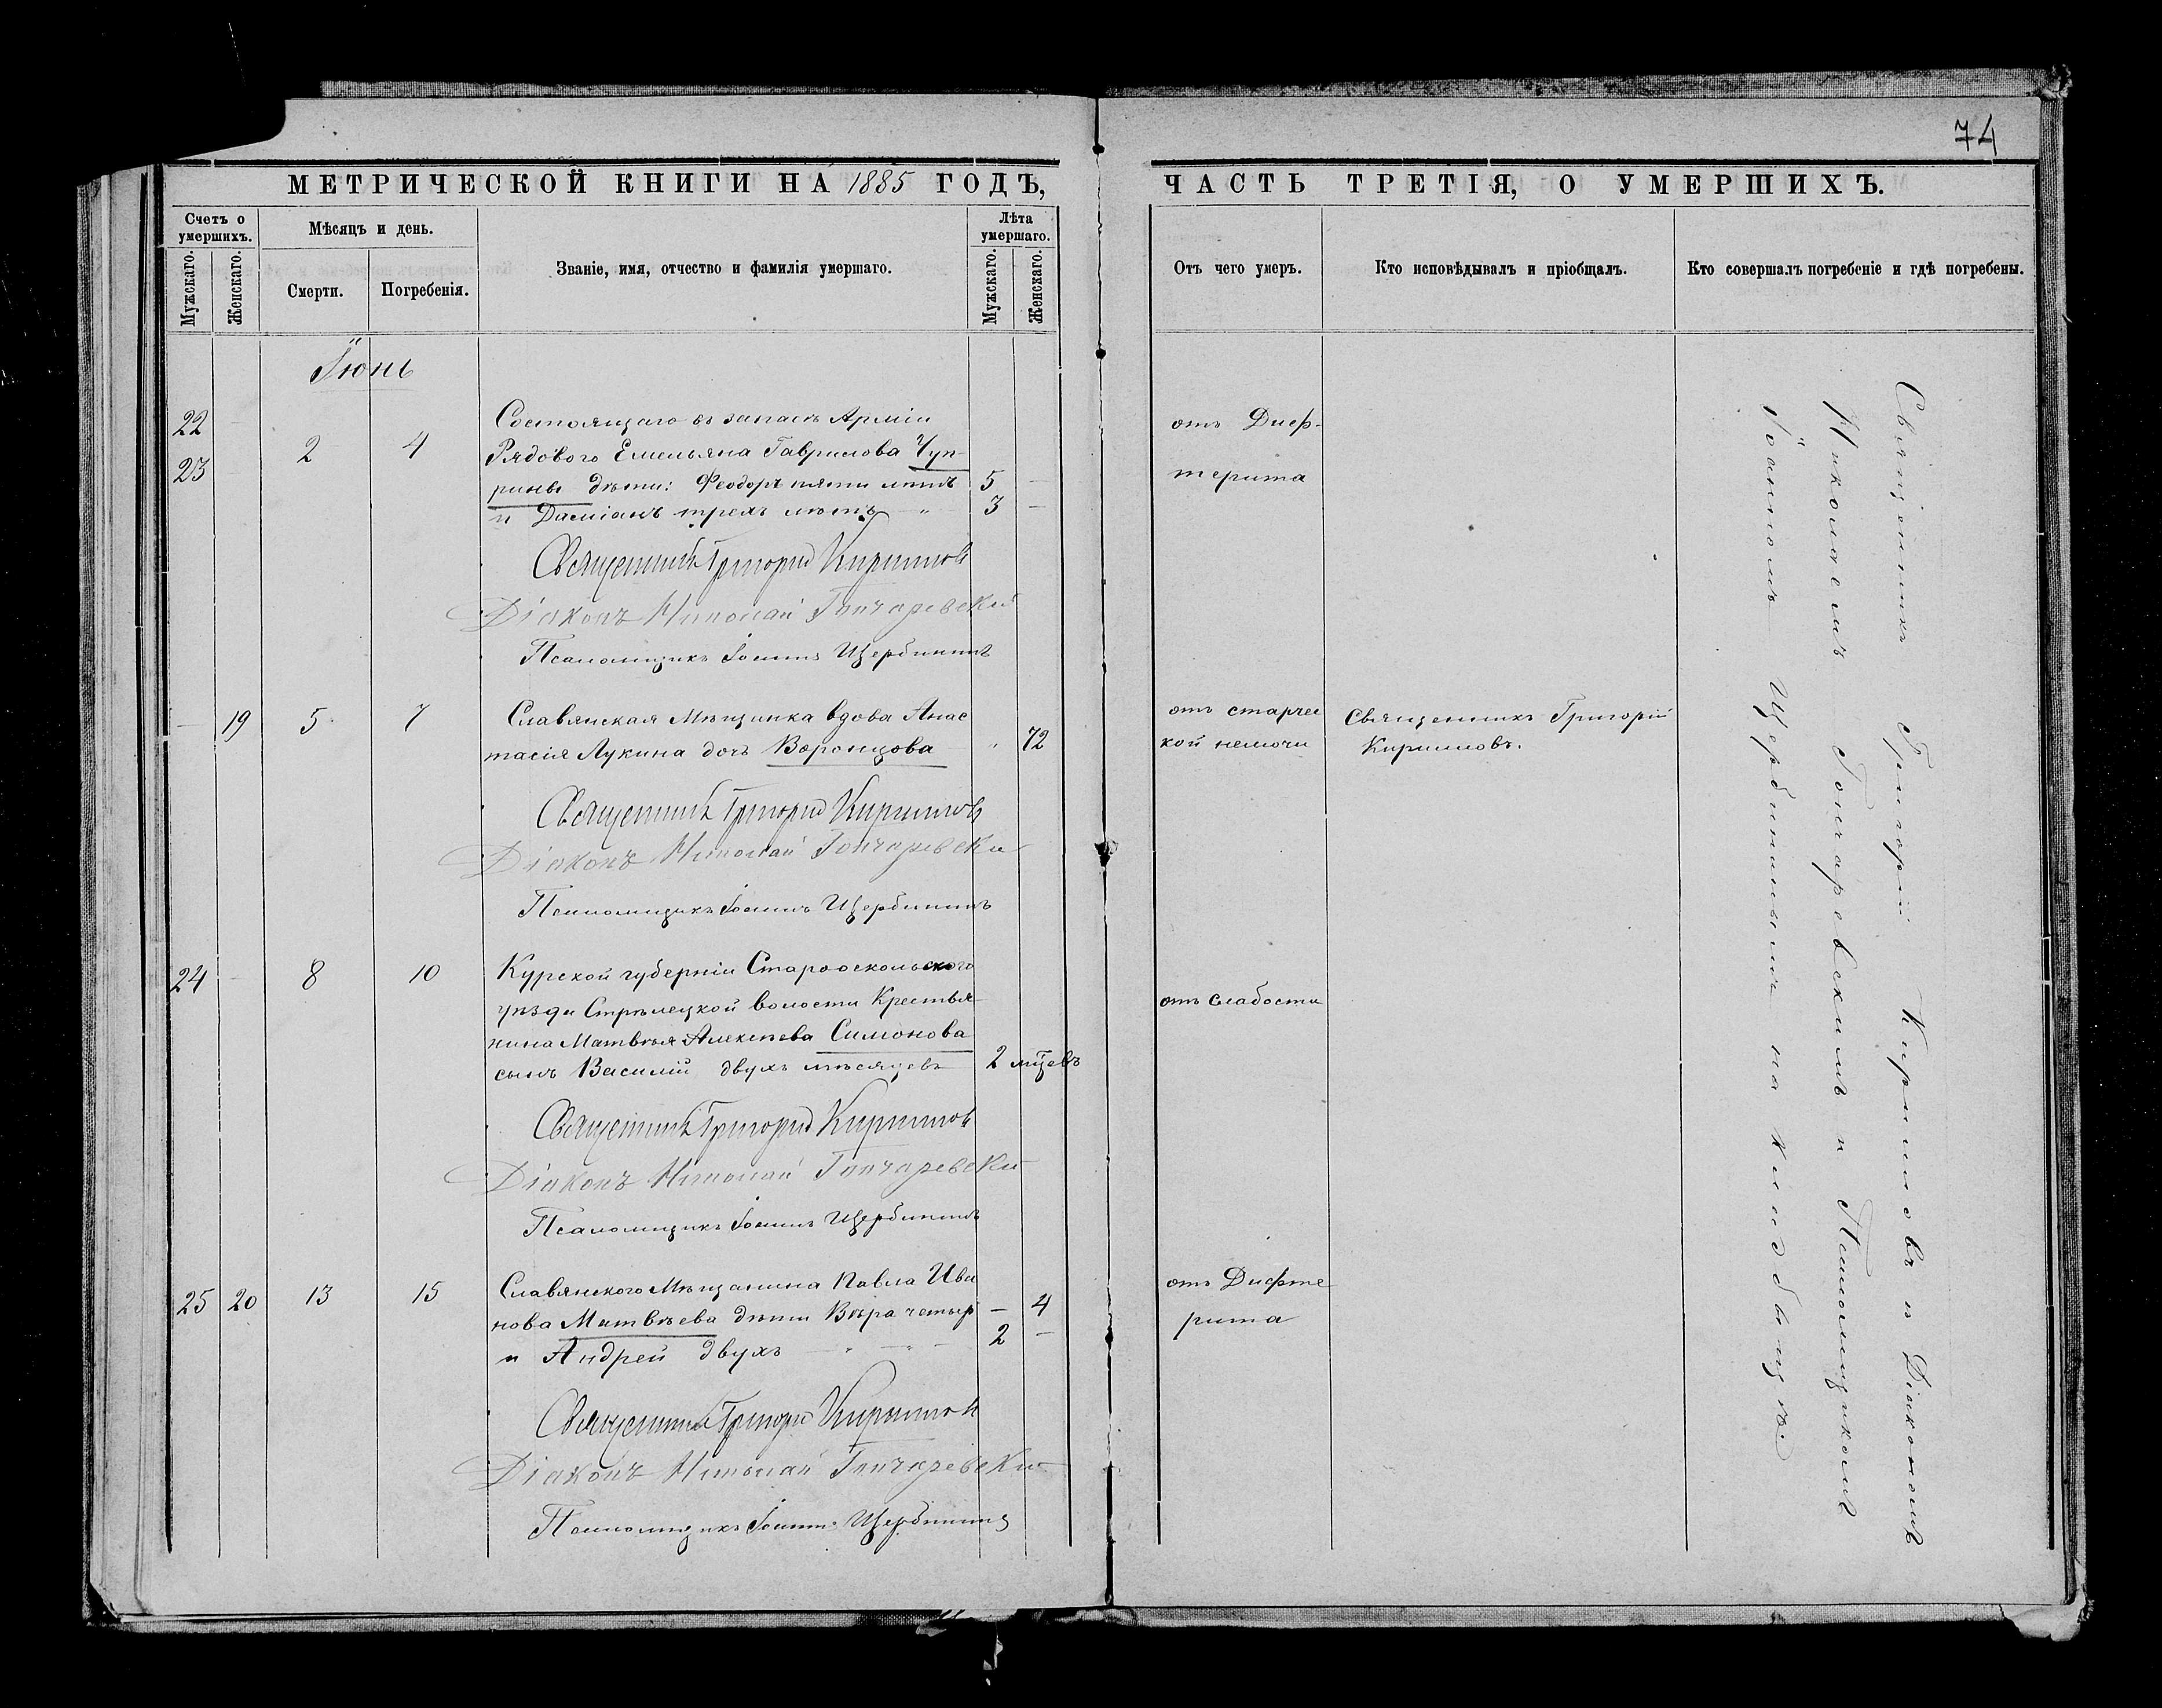 74
МЕТРИЧЕСКОЙ КНИГИ НА 1885 ГОДЪ,
Счетъ о умершихъ.
Мужскаго.
Женскаго.
Мѣсяцъ и день.
Смерти.
Погребенія.
Званіе, имя, отчество и фамилія умершаго.
Лѣта умершаго.
Мужскаго.
Женскаго.
Іюнь
22
23
2
4
Состоящаго въ запасѣ Арміи
Рядового Емельяна Гаврилова Чуп-
рины дѣти: Феодоръ пяти лѣтъ
5 —
и Даміанъ трехъ лѣтъ — „
3 —
Священникъ Григорій Кирилловъ
Діаконъ Николай Гончаревскій
Псаломщикъ Іоаннъ Щербининъ
— 19
5
7
Славянская Мѣщанка вдова Анас
тасія Лукина дочь Воронцова
„ 72
Священникъ Григорій Кирилловъ
Діаконъ Николай Гончаревскій
Псаломщикъ Іоаннъ Щербининъ
24 —
8
10
Курской губерніи Старооскольского
уѣзда Стрѣлецкой волости Крестья-
нина Матвѣя Алексѣева Симонова
сынъ Василій двухъ мѣсяцевъ
2 мцевъ
Священникъ Григорій Кирилловъ
Діаконъ Николай Гончаревскій
Псаломщикъ Іоаннъ Щербининъ
25 20
13
15
Славянского Мѣщанина Павла Ива
нова Матвѣева дѣти Вѣра четыр
— 4
и Андрей двухъ — „ — „ —
2 —
Священникъ Григорій Кирилловъ
Діаконъ Николай Гончаревскій
Псаломщикъ Іоаннъ Щербининъ
ЧАСТЬ ТРЕТІЯ, О УМЕРШИХЪ.
Отъ чего умеръ.
Кто исповѣдывалъ и пріобщалъ.
Кто совершалъ погребеніе и гдѣ погребены.
отъ Диф-
терита
отъ старчес
кой немочи
Священникъ Григорій
Кирилловъ.
отъ слабости
отъ Дифте
рита
Священникъ Григорій Кирилловъ съ Діакономъ
Николаемъ Гончаревскимъ и Псаломщикомъ
Іоанномъ Щербининымъ на кладбищѣ.